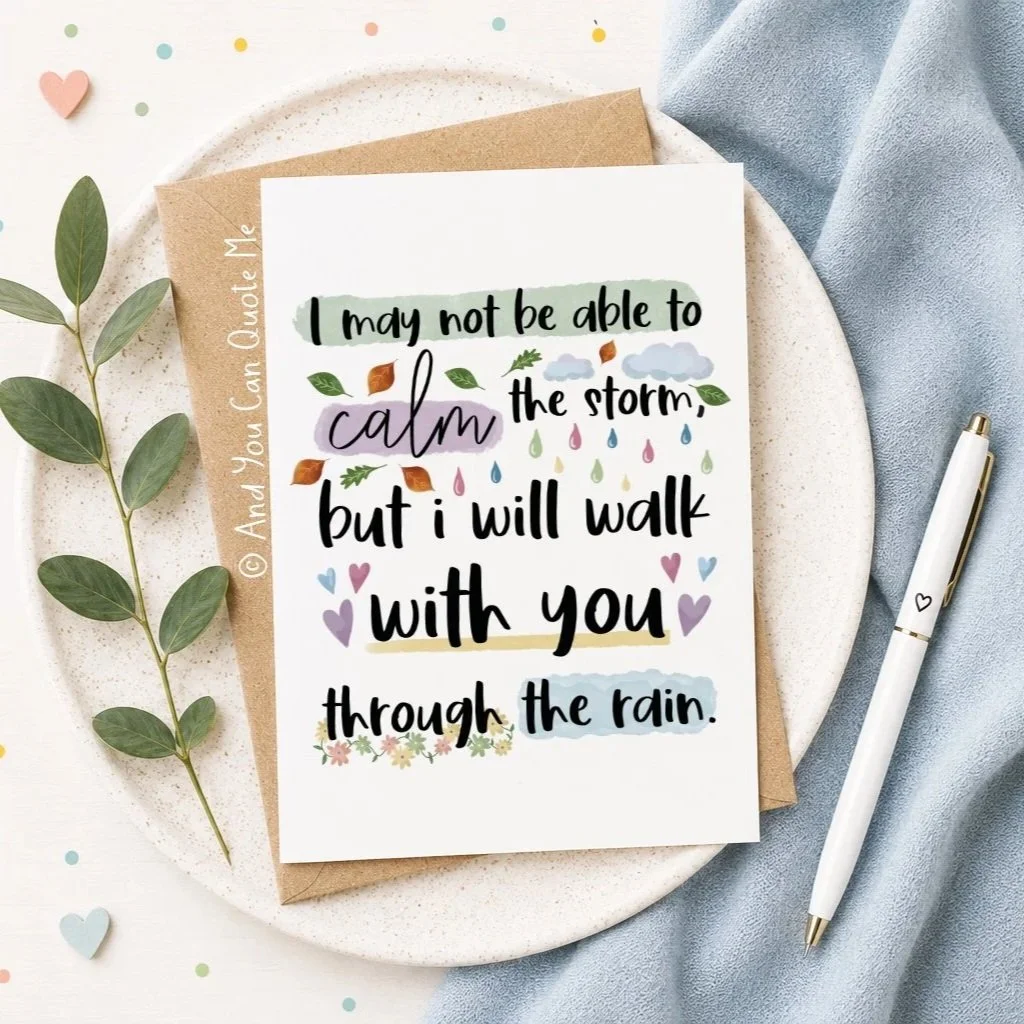 I may not be able to
calm the storm,
but i will walk
with you
through the rain.
© And You Can Quote Me